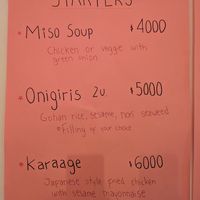 STARTERS
* Miso Soup $4000
Chicken or veggie with
green onion
* Onigiris 2u. $5000
Gohan rice, sesame, nori seaweed
* Filling of your choice
* Karaage $6000
Japanese style fried chicken
with sesame mayonnaise